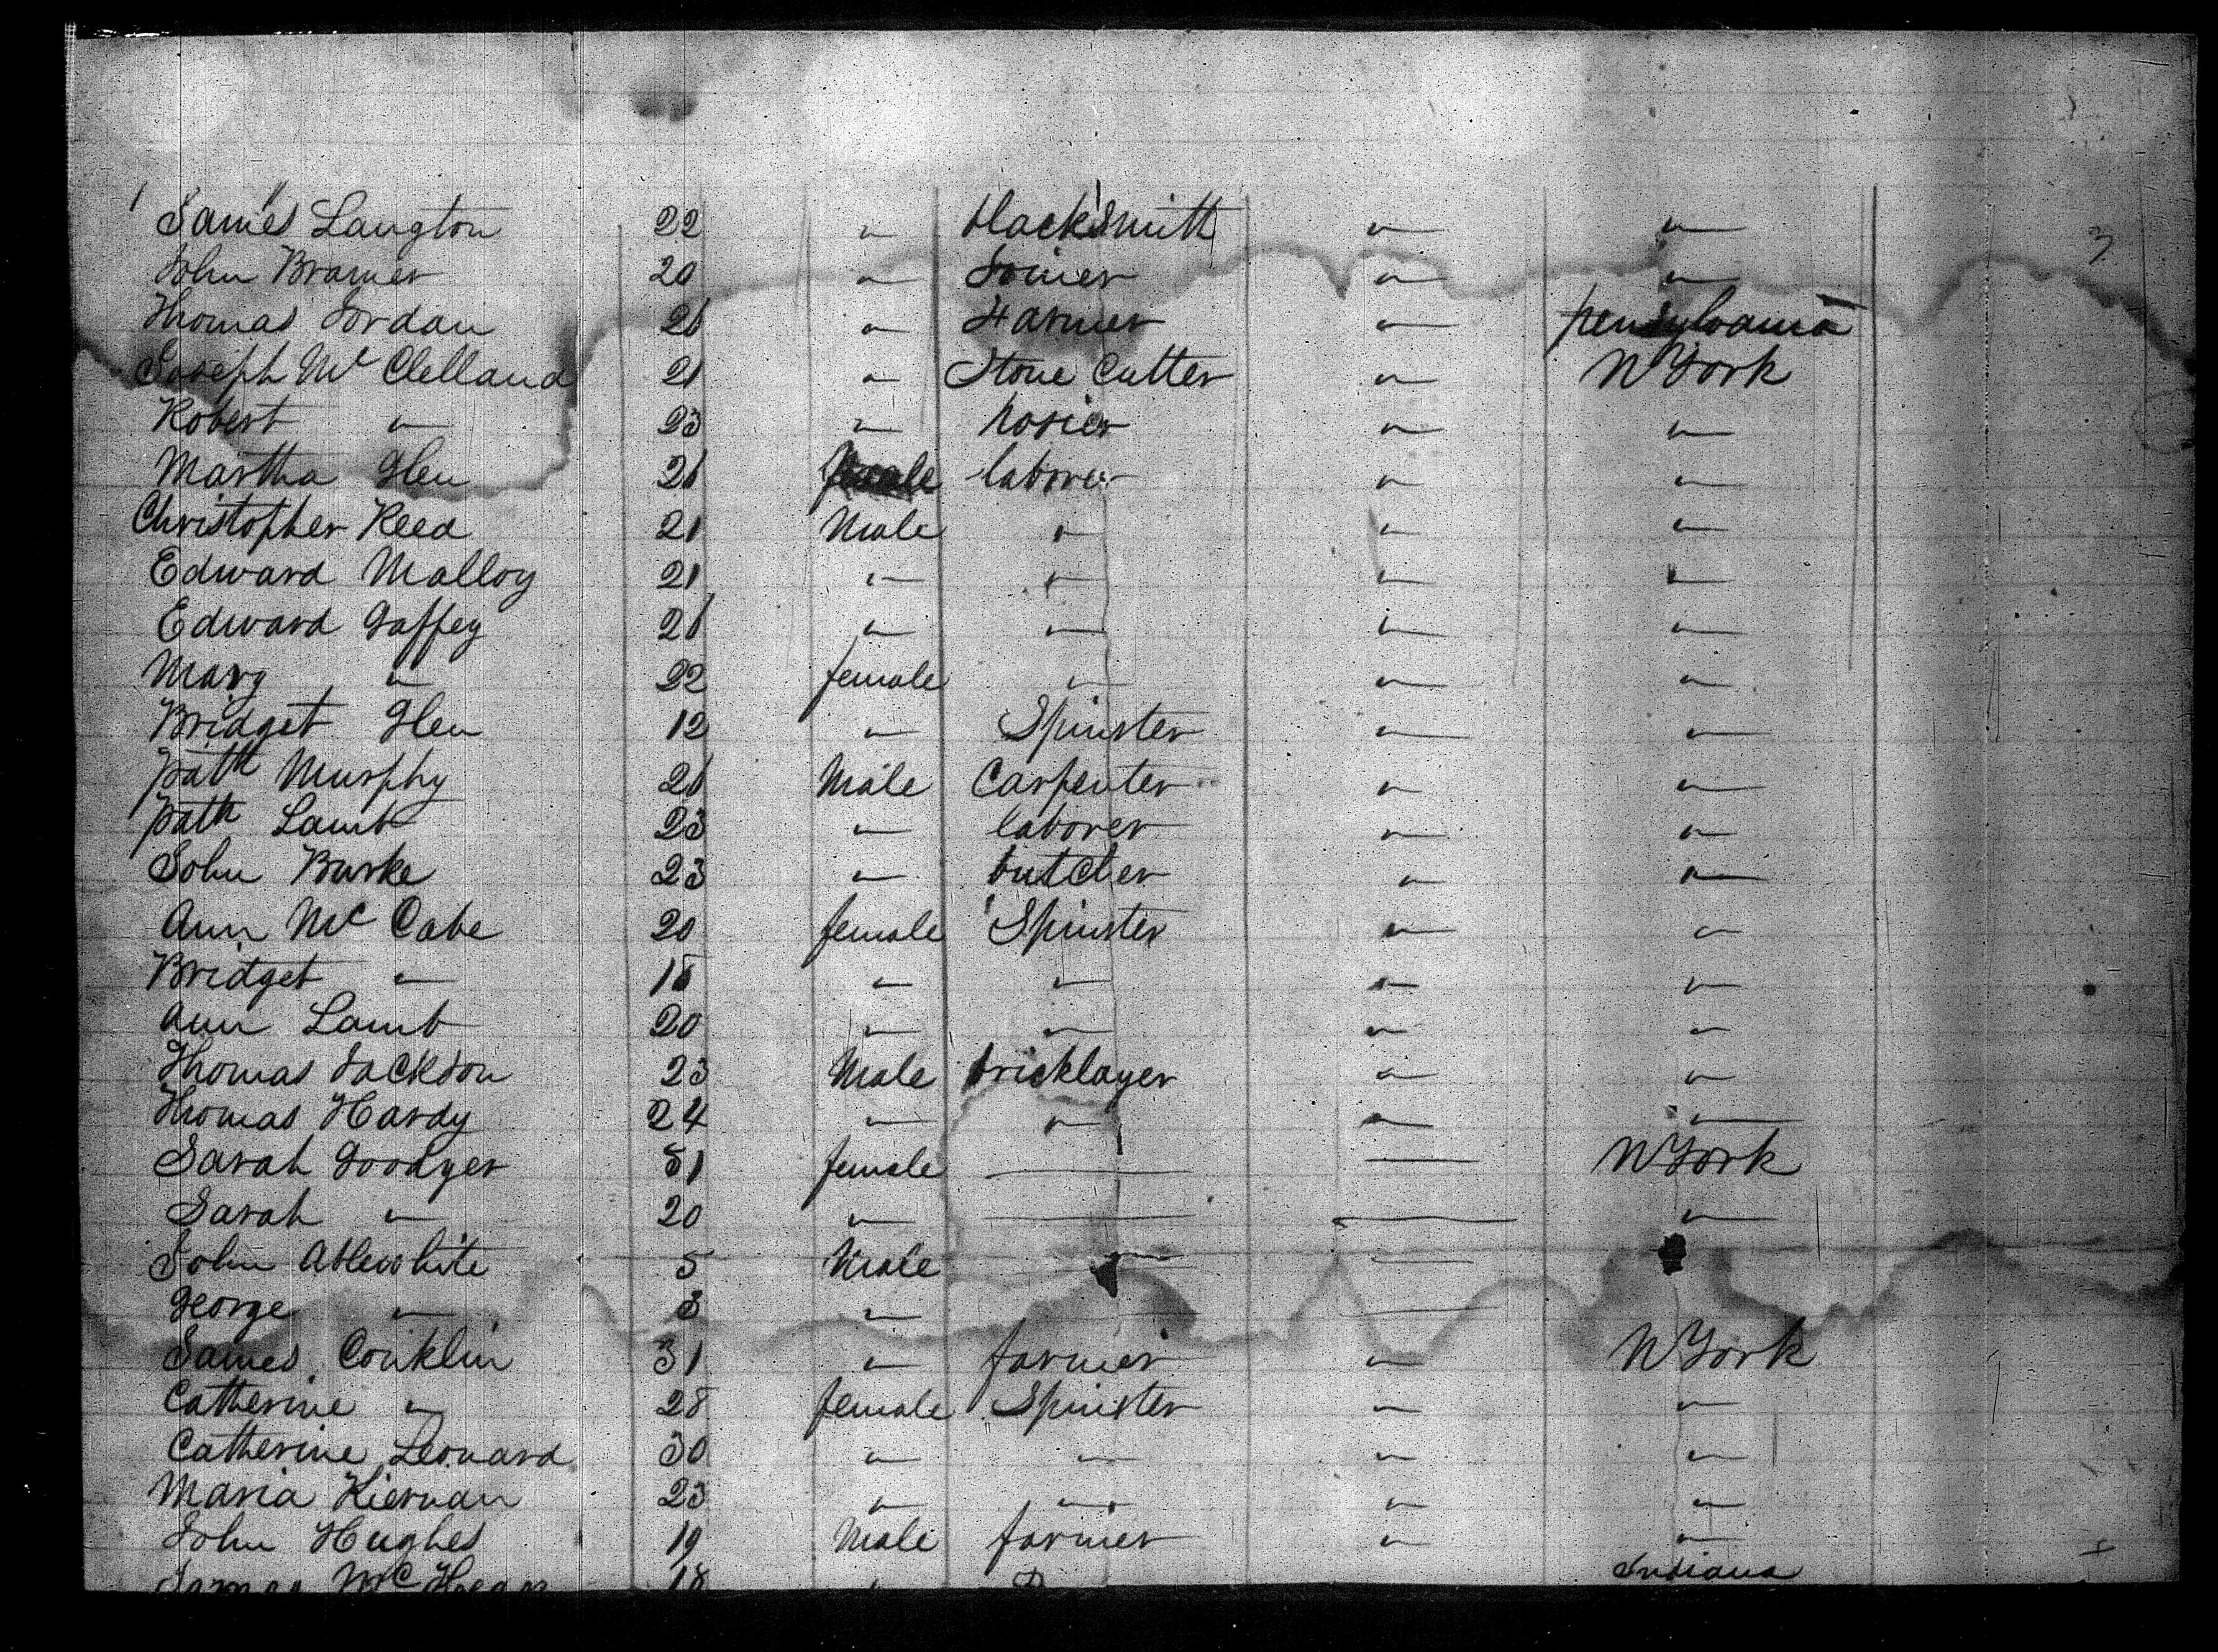 James Langton 22 " blacksmith " "
John Bramer 20 " Joiner " "
Thomas Jordan 26 " Farmer " pensylvania
Joseph Mc Clelland 21 " Stone Cutter " N York
Robert " 23 " hosier " "
Martha Glen 26 female laborer " "
Christopher Reed 21 Male " " "
Edward Malloy 21 " " " "
Edward Gaffey 26 " " " "
Mary " 22 female " " "
Bridget Glen 12 " Spinster " "
patk Murphy 26 Male Carpenter " "
patk Lamb 23 " laborer " "
John Burke 23 " butcher " "
Ann Mc Cabe 20 female Spinster " "
Bridget " 18 " " " "
Ann Lamb 20 " " " "
Thomas Jackson 23 Male bricklayer " "
Thomas Hardy 24 " " " "
Sarah Goodyer 51 female — — N York
Sarah " 20 " — — "
John Ablewhite 5 Male — —
George " 3 " — —
James Conklin 31 " farmer " N York
Catherine " 28 female Spinster " "
Catherine Leonard 30 " " " "
Maria Kiernan 23 " " " "
John Hughes 19 Male farmer " "
18 " Indiana